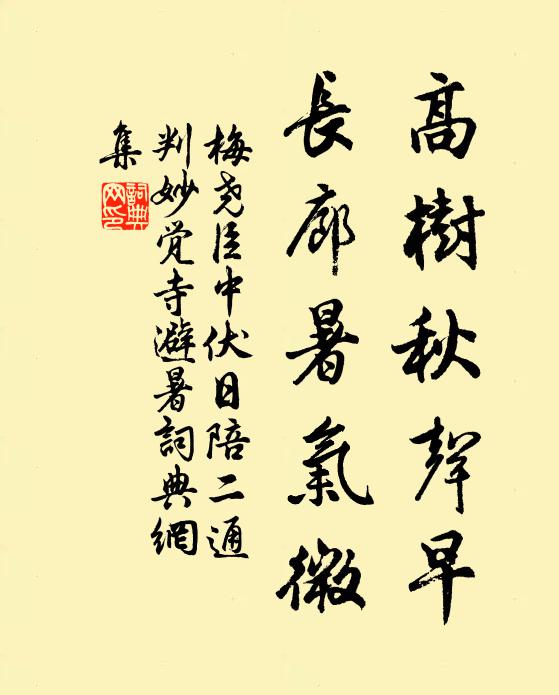 高樹秋聲早
長廊暑氣微
梅堯臣中伏日陪二通
判妙覺寺避暑詞典網
集
詞典
网印